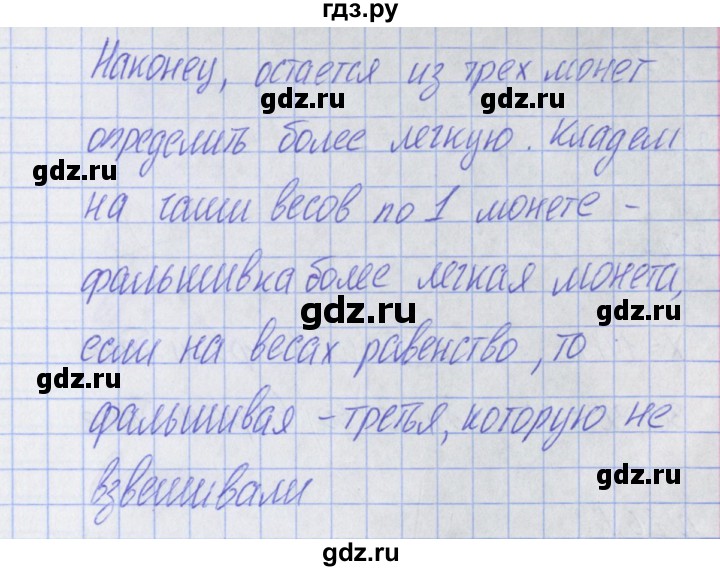 гдз.ру
Наконец, остается из трех монет
gdz.ru gdz.ru
определить более легкую. Кладем
gdz.ru
на чаши весов по 1 монете -
фальшивка более легкая монета,
gdz.ru gdz.ru
если на весах равенство, то
gdz.ru
фальшивая - третья, которую не
взвешивали
gdz.ru
gdz.ru